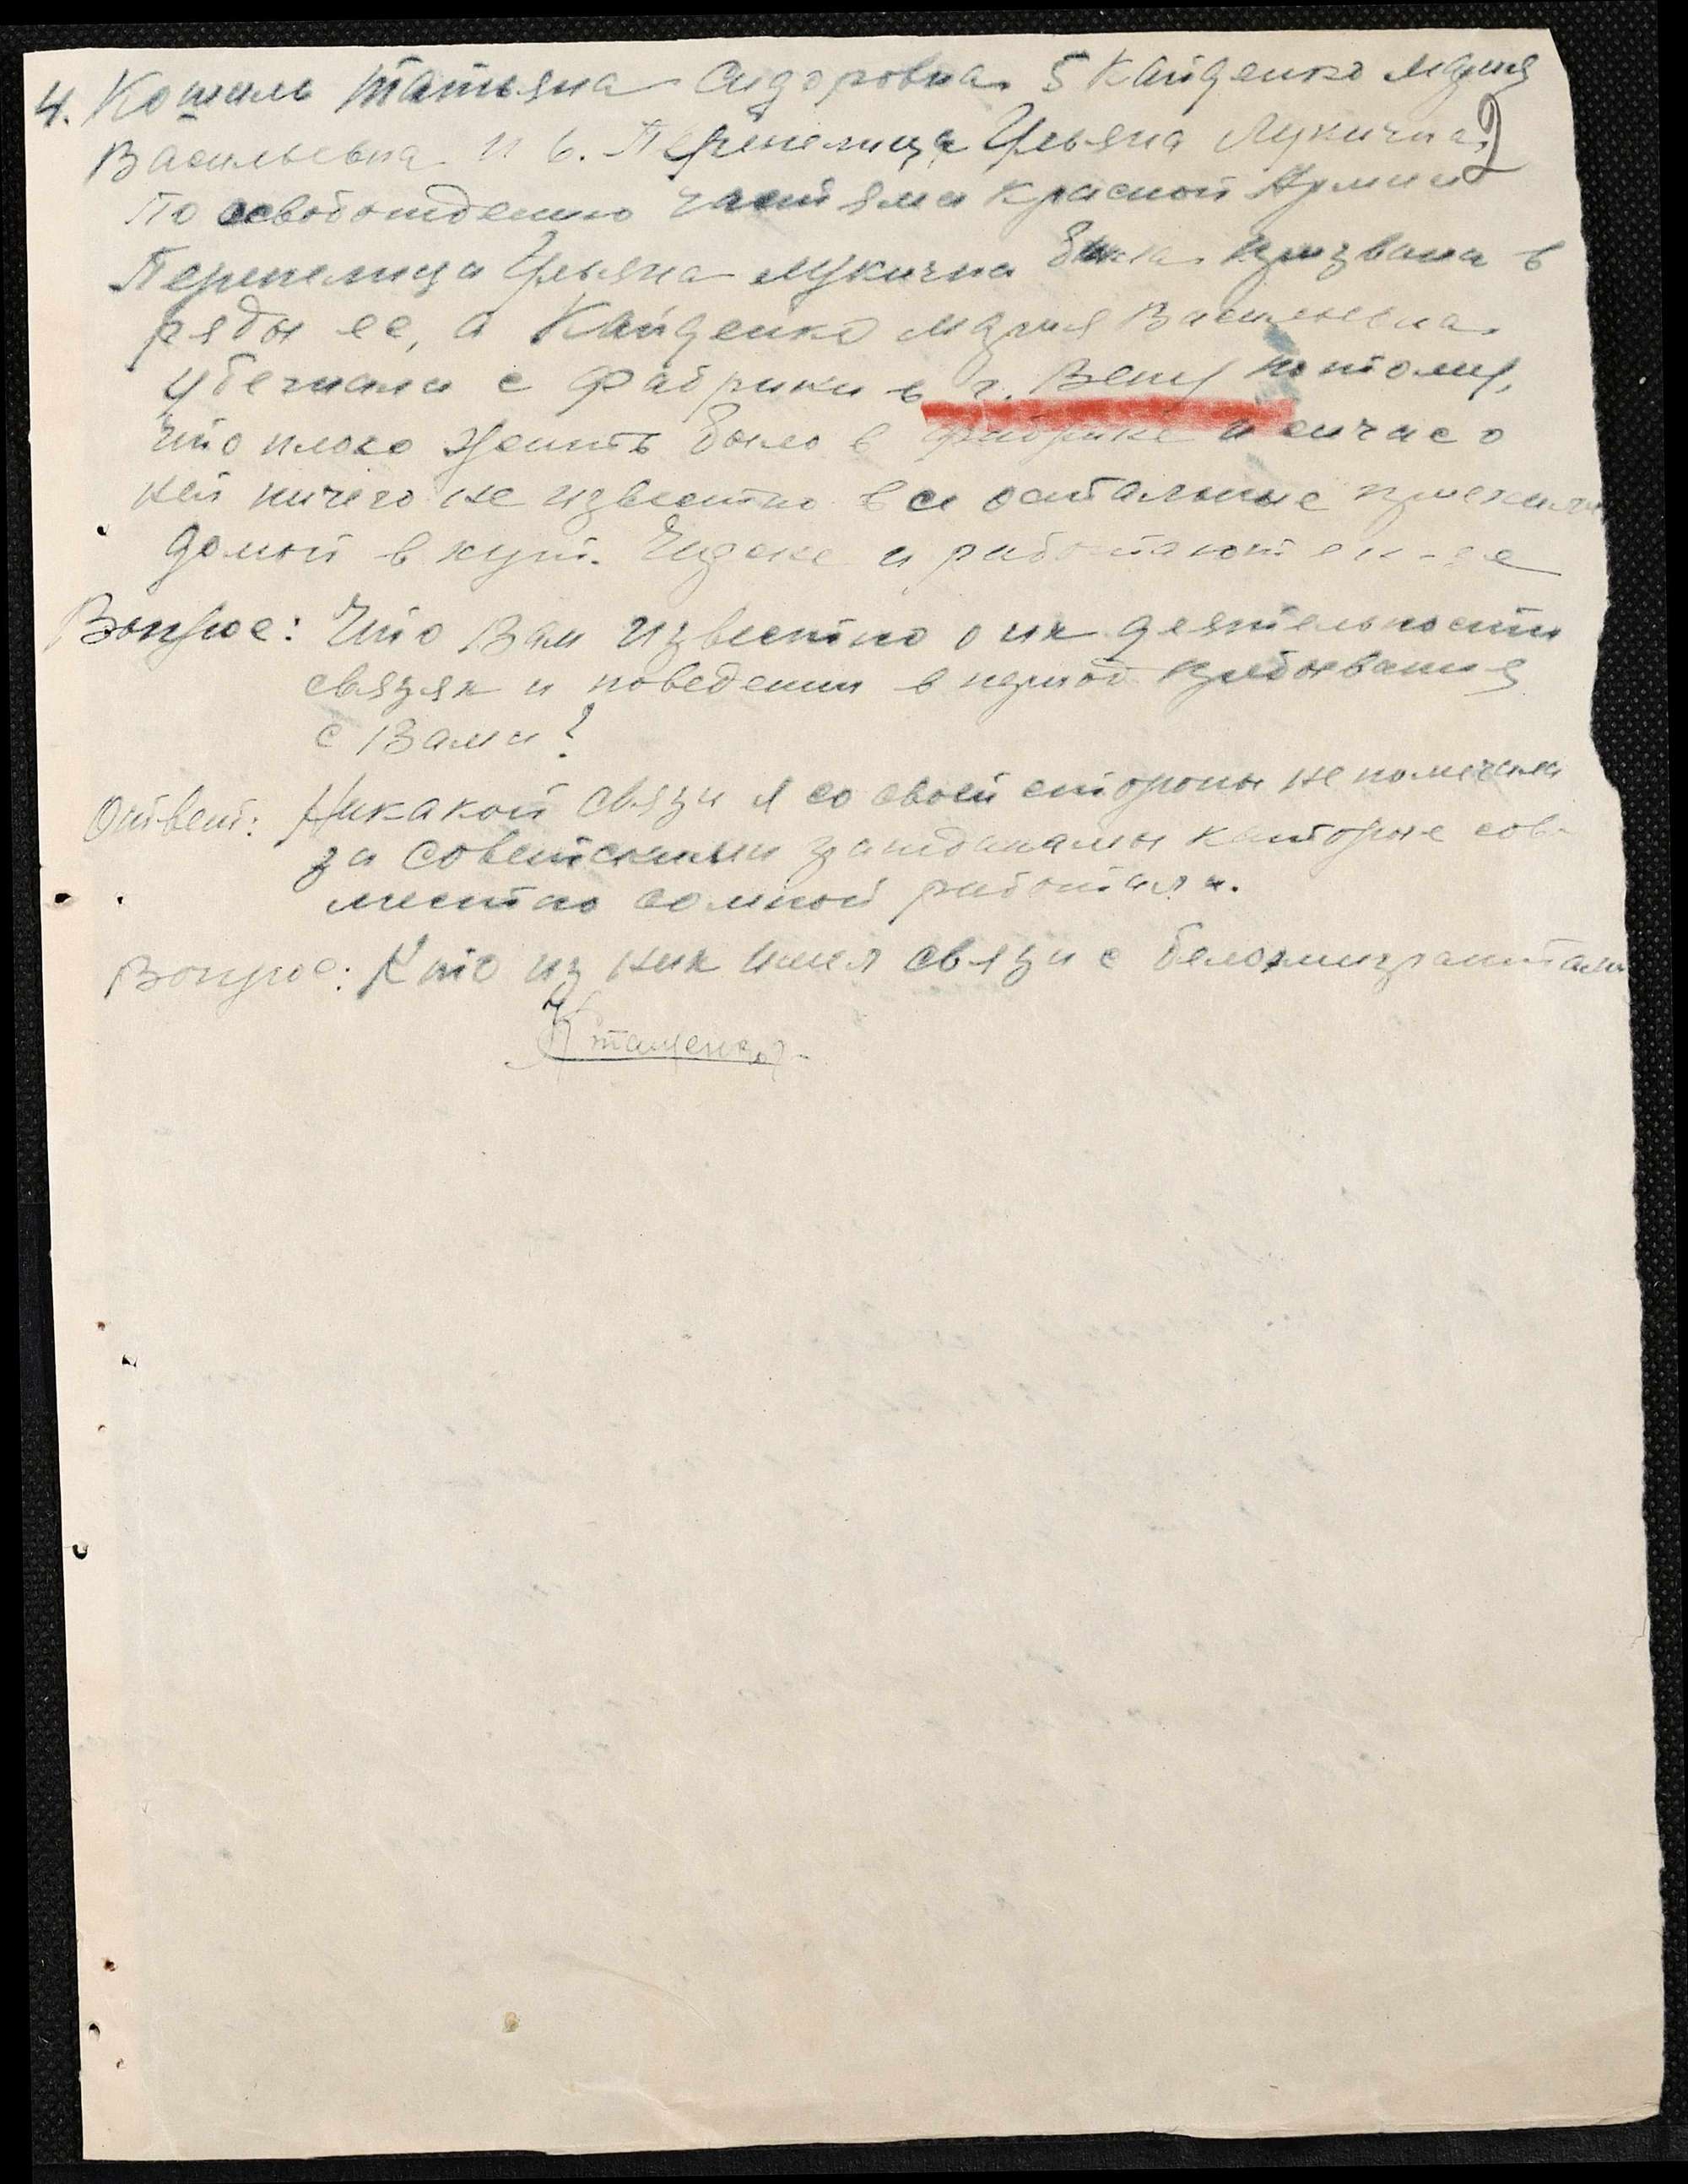 4. Кошель Татьяна Сидоровна 5 Кайденко Мария
2
Васильевна и 6. Перепелица Ульяна Лукична.
По освобождению частями Красной Армии
Перепелица Ульяна Лукична была призвана в
ряды ее, а Кайденко Мария Васильевна
убежала с фабрики в г. Вену потому,
что плохо жить было в фабрике и сичас о
ней ничего не известно все остальные приехали
домой в хут. и работают
Вопрос: Что Вам известно о их деятельности
связях и поведении в период пребывания
с Вами?
Ответ: Никакой связи я со своей стороны не помечала
за советскими гражданами которые сов-
местно со мной работали.
Вопрос: Кто из них имел связи с белоэмигрантами